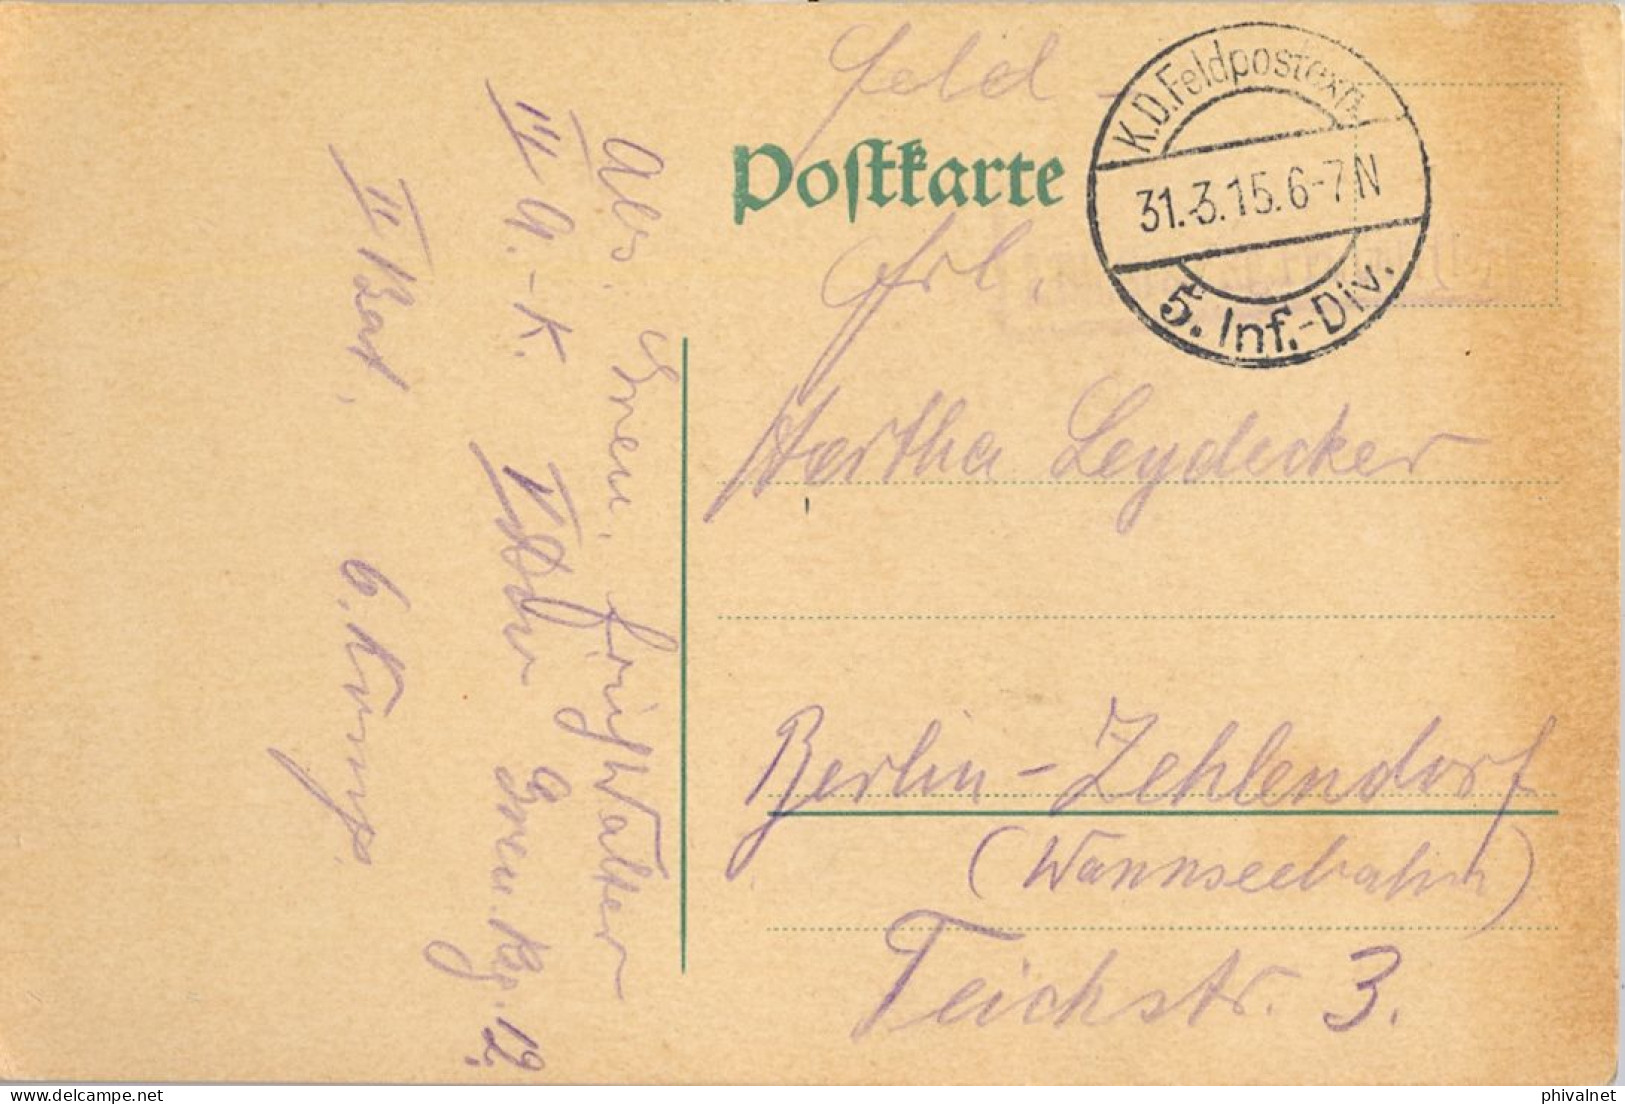 Feld -
Postkarte
K.D.Feldpostexp.
31.3.15.6-7N
5. Inf.-Div.
Frl.
Hertha Leydecker
Berlin-Zehlendorf
(Wannseebahn)
Teichstr. 3.
Abs. Gren. Walter
III A.-K. Gren. Rg. 12.
II Bat. 6. Komp.
phivalnet